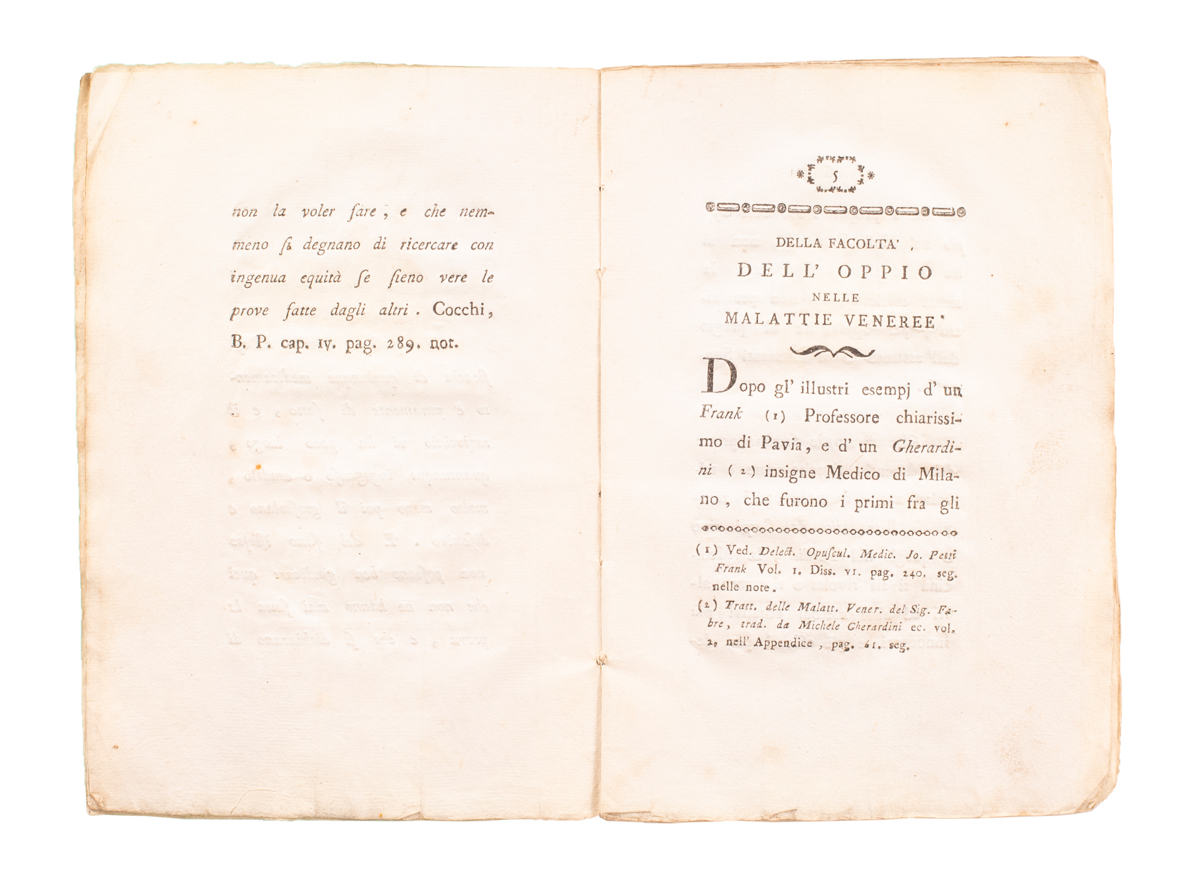 non la voler fare, e che nem-
meno ſi degnano di ricercare con
ingenua equità ſe ſieno vere le
prove fatte dagli altri. Cocchi,
B. P. cap. IV. pag. 289. not.
5
DELLA FACOLTA'
DELL' OPPIO
NELLE
MALATTIE VENEREE
Dopo gl' illustri esempj d' un
Frank (1) Professore chiarissi-
mo di Pavia, e d' un Gherardi-
ni (2) insigne Medico di Mila-
no, che furono i primi fra gli
(1) Ved. Delect. Opuſcul. Medic. Jo. Petri
Frank Vol. I. Diss. VI. pag. 240. seg.
nelle note.
(2) Tratt. delle Malatt. Vener. del Sig. Fa-
bre, trad. da Michele Gherardini ec. vol.
2, nell' Appendice, pag. 61. seg.